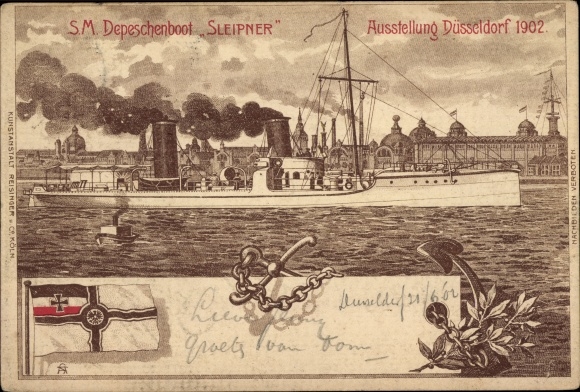 S.M. Depeschenboot „SLEIPNER" Ausstellung Düsseldorf 1902.
KUNSTANSTALT REISINGER u. Co. KÖLN.
NACHBILDEN VERBOTEN.
Dusseldorf 21/6/02
Lieve
Groets van Dom